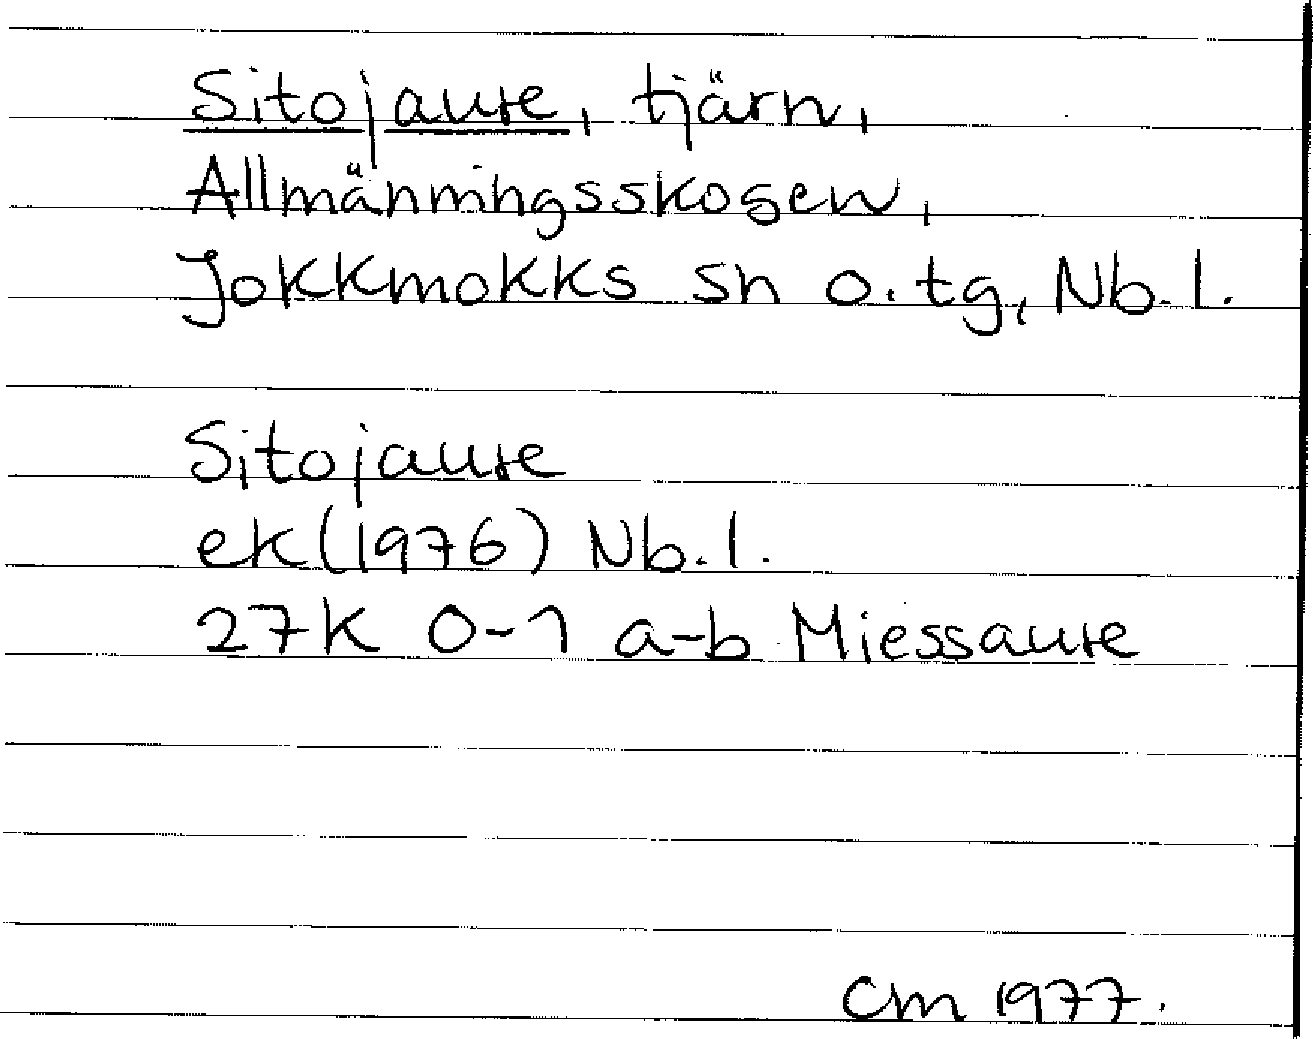 Sitojaure, tjärn,
Allmänningsskogen,
Jokkmokks sn o. tg, Nb. l.
Sitojaure
ek (1976) Nb. l.
27K 0-1 a-b Miessaure
Cm 1977.